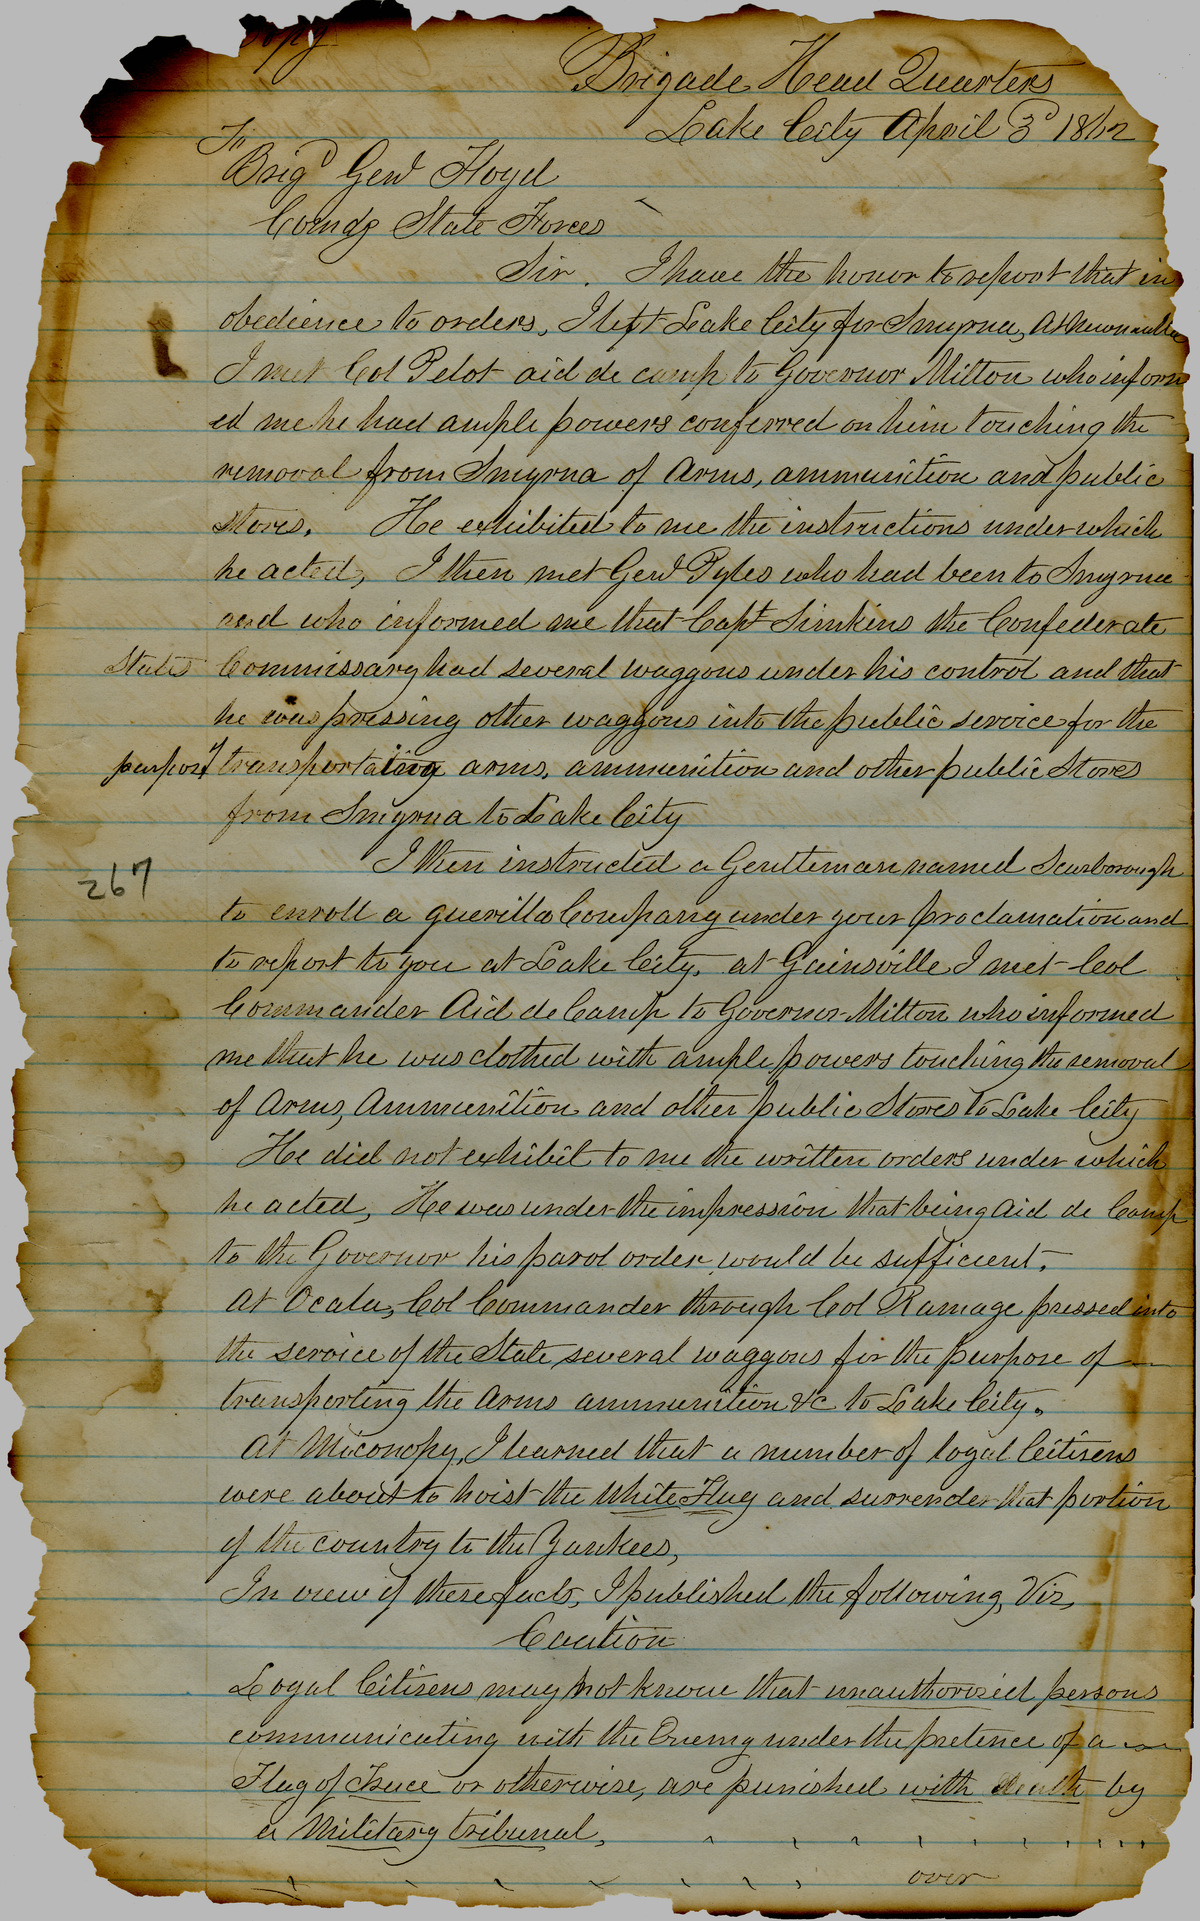 Copy
Brigade Head Quarters
Lake City April 3d 1862
To
Brigd Genl Floyd
Comdg State Forces
Sir. I have the honor to report that in
obedience to orders, I left Lake City for Smyrna, At Newnansville
I met Col Pelot aid de camp to Governor Milton who inform
ed me he had ample powers conferred on him touching the
removal from Smyrna of Arms, ammunition and public
stores. He exhibited to me the instructions under which
he acted, I then met Genl Pyles who had been to Smyrna
and who informed me that Capt Simkins the Confederate
States Commissary had several waggons under his control and that
he was pressing other waggons into the public service for the
purpose of transportating arms, ammunition and other public Stores
from Smyrna to Lake City
267
I then instructed a Gentleman named Scarborough
to enroll a guerilla Company under your proclamation and
to report to you at Lake City, at Gainsville I met Col
Commander Aid de Camp to Governor Milton who informed
me that he was clothed with ample powers touching the removal
of Arms, Ammunition and other public Stores to Lake City
He did not exhibit to me the written orders under which
he acted, He was under the impression that being Aid de Camp
to the Governor his parol order would be sufficient.
At Ocala, Col Commander through Col Ramage pressed into
the service of the State several waggons for the purpose of
transporting the Arms ammunition &c to Lake City.
At Miconopy, I learned that a number of loyal Citizens
were about to hoist the White Flag and surrender that portion
of the country to the Yankees,
In view of these facts, I published the following, Viz,
Caution
Loyal Citizens may not know that unauthorized persons
communicating with the Enemy under the pretence of a
Flag of Truce or otherwise, are punished with death by
a Military tribunal,
over